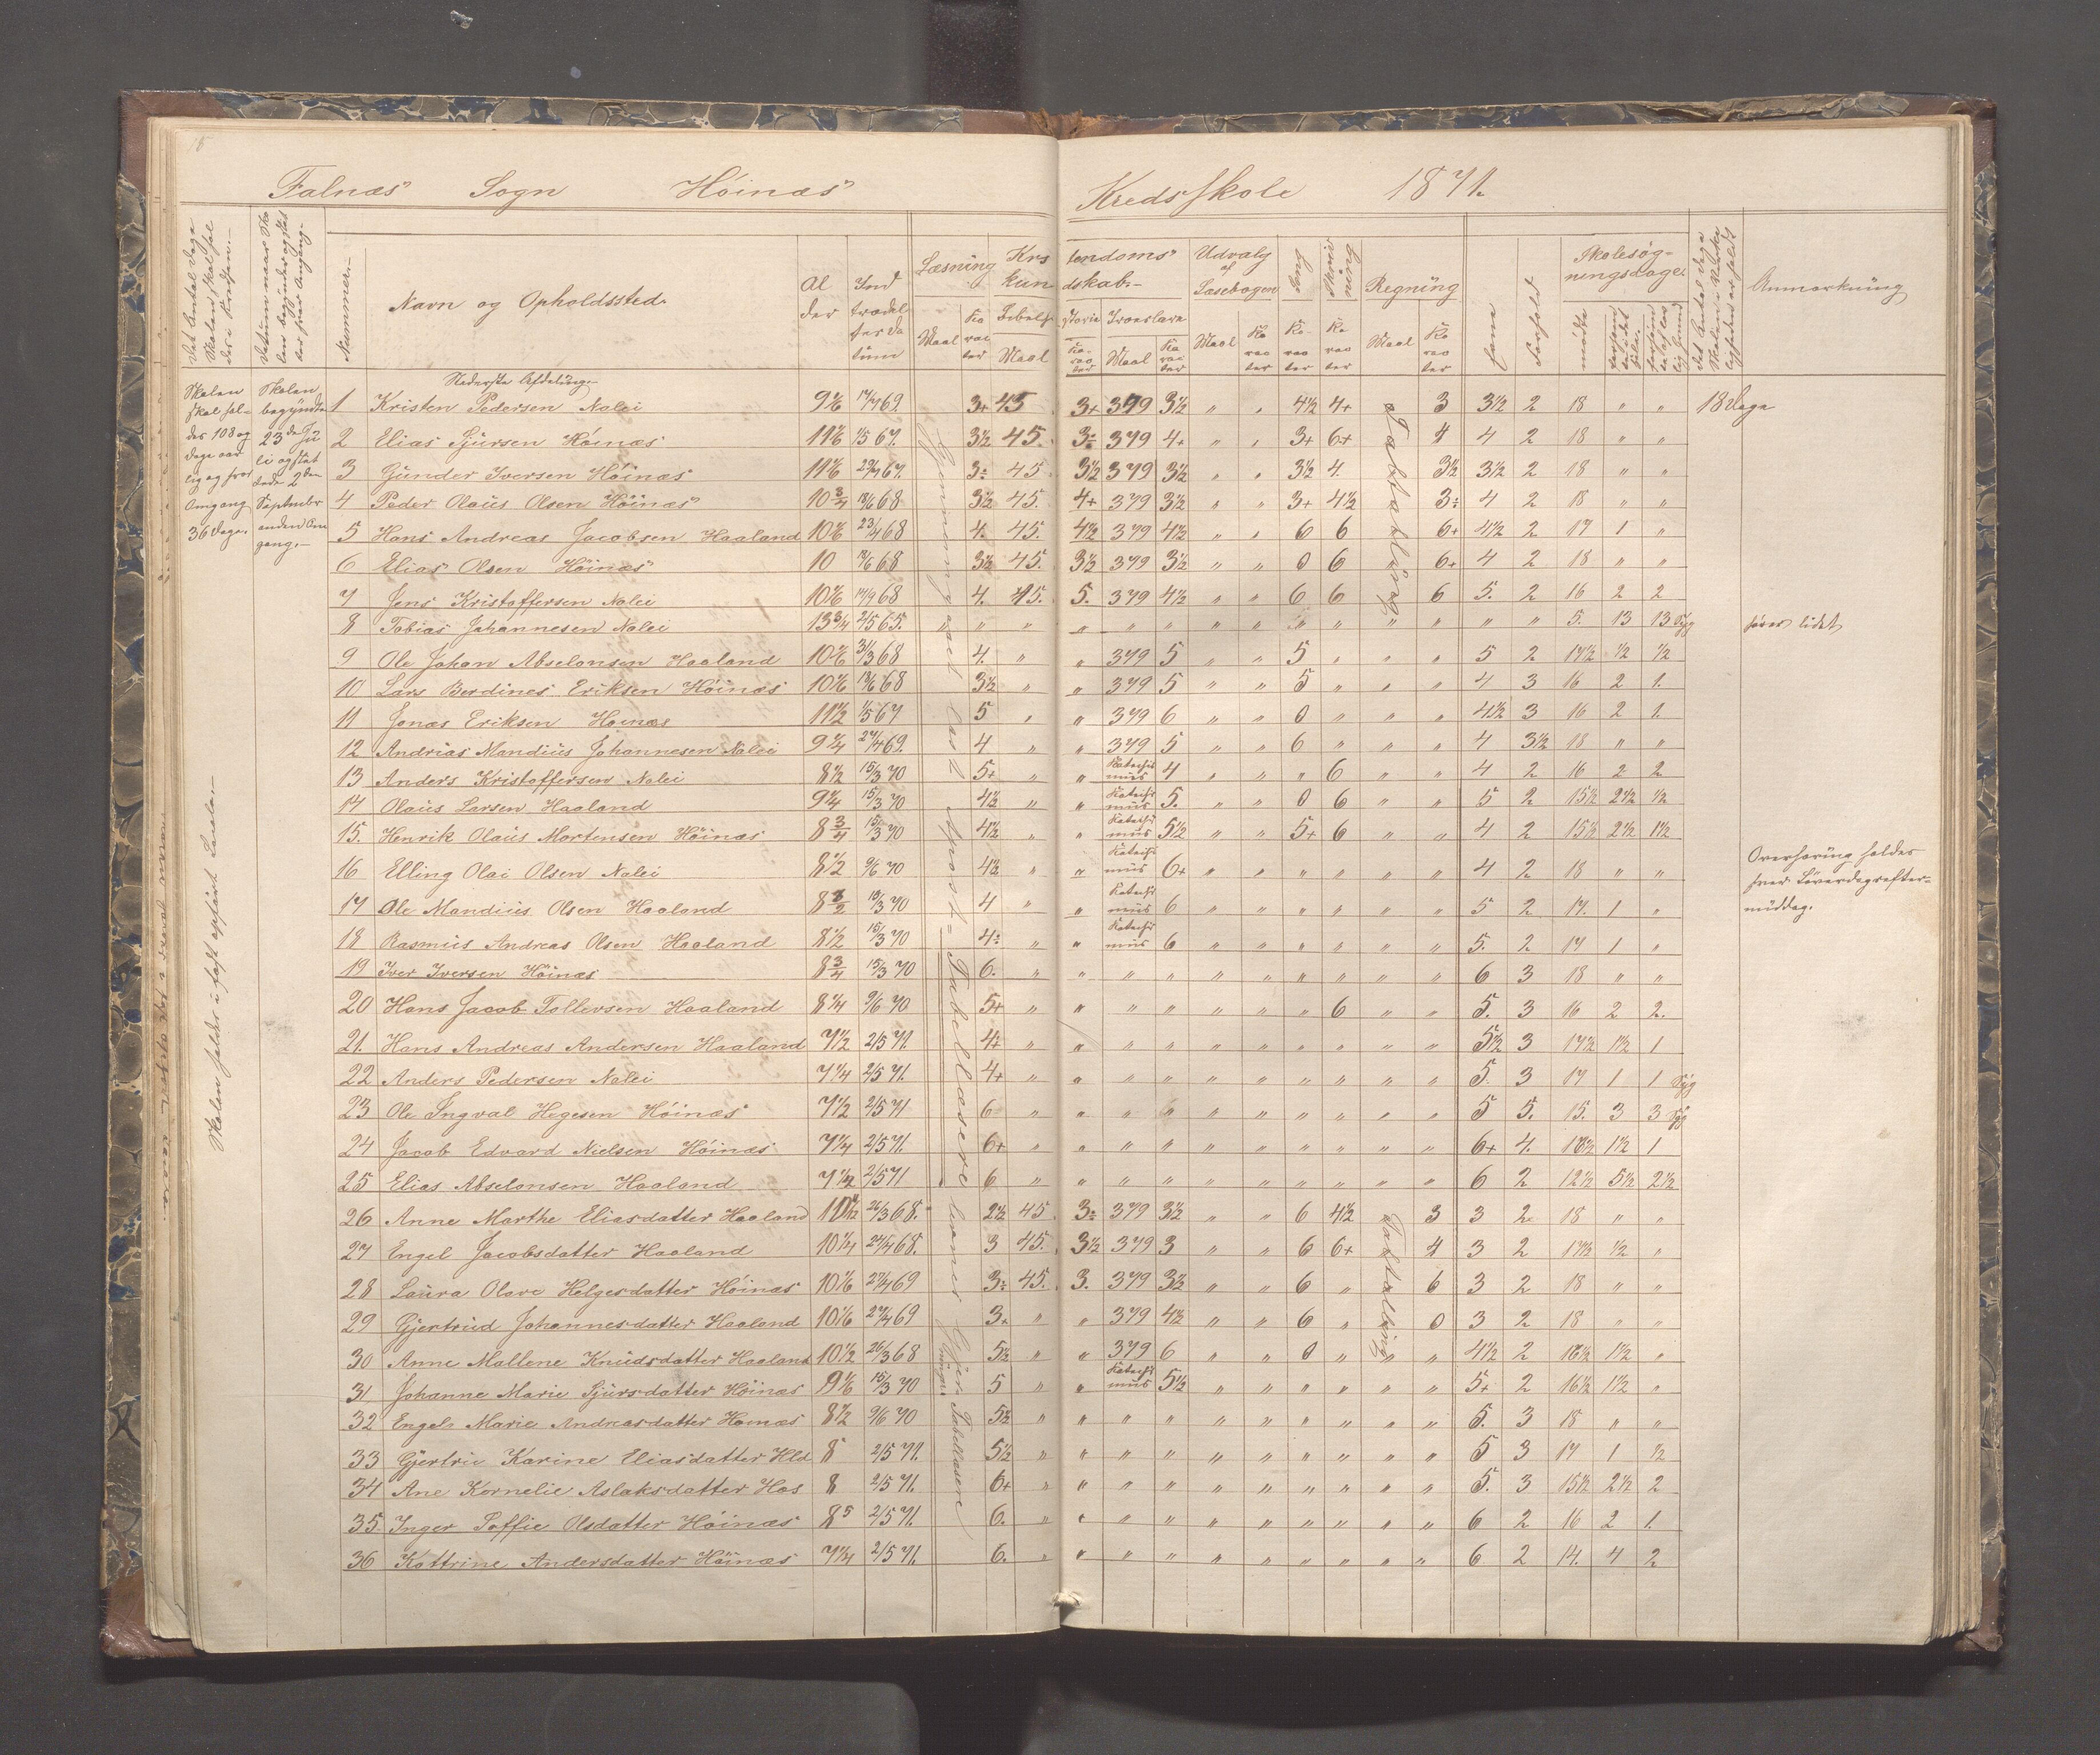 Falnæs Sogn Höinæs Kredsskole 1871.
Nummer
Navn og Opholdssted.
Al
der
Ind
trædel
ses da
tum
Læsning
Maal
Ka
rac
ter
Krs
kun
Bibelhi
Maal
tendoms
dskab.
storie
Ka
rac
ter
Troeslære
Maal
Ka
rac
ter
Udvalg
af
Læsebogen
Maal
Ka
rac
ter
Sang
Ka
rac
ter
Skriv
ning
Ka
rac
ter
Regning
Maal
Ka
rac
ter
Evne
Forhold
Skolesøg-
ningsdage
mødte
Anmærkning
Skolen
skal hol-
des 108
dage aar
lig og hver
Omgang
36 dage.
Skolen
begyndte
23de Ju
li og slut
tede 2den
September
anden Om
gang.
Nederste Afdeling
1 Kristen Pedersen Nalei 9 3+ 45 3+ 379 3½ " " 4½ 4+ 3 3½ 2 18 " " 18 Dage
2 Elias Sjursen Höinæs 3½ 45. 3÷ 379 4+ " " 3+ 6+ 4 4 2 18 " "
3 Gunder Iversen Höinæs 3÷ 45 3½ 379 3½ " " 3½ 4. 3½ 3½ 2 18 " "
4 Peder Olaus Olsen Höinæs 10¾ 3½ 45. 4+ 379 3½ " " 3+ 4½ 3÷ 4 2 18 " "
5 Hans Andreas Jacobsen Haaland 23/4 68 4. 45. 4½ 379 4½ " " 6 6 6+ 4½ 2 17 1 "
6 Elias Olsen Höinæs 10 3½ 45. 3½ 379 3½ " " 0 6 6+ 4 2 18 " "
7 Jens Kristoffersen Nalei 4. 45. 5. 379 4½ " " 6 6 6 5. 2 16 2 2
8 Tobias Johannesen Nalei 13¾ 2/5 65. " " " " " " " " " " " " " " 5. 13 13 Syg hører lidet
9 Ole Johan Abselonsen Haaland 31/3 68 4. " " 379 5 " " 5 " " " 5 2 17½ ½ ½
10 Lars Berdines Eriksen Höinæs 3½ " " 379 5 " " 5 " " " 4 3 16 2 1.
11 Jonas Eriksen Hoinæs 11½ 1/5 67 5 " " 379 6 " " 0 " " " 4½ 3 16 2 1.
12 Andrias Mandius Johannesen Nalei 9¼ 27/4 69. 4 " " 379 5 " " 6 " " " 4 3½ 18 " "
13 Anders Kristoffersen Nalei 8½ 15/3 70 5+ " " Katechis mus 4 " " " 6 " " 4 2 16 2 2
14 Olaus Larsen Haaland 9¼ 15/3 70 4½ " " Katechis mus 5. " " 0 6 " " 5 2 15½ 2½ ½
15. Henrik Olaus Mortensen Höinæs 8¾ 15/3 70 4½ " " Katechis mus 5½ " " 5+ 6 " " 4 2 15½ 2½ 1½
16 Elling Olai Olsen Nalei 8½ 9/6 70 4½ " " Katechis mus 6+ " " " " " " 4 2 18 " "
Overhøring holdes
hver Løverdagsefter-
middag.
17 Ole Mandius Olsen Haaland 15/3 70 4 " " Katechis mus 6 " " " " " " 5 2 17. 1 "
18 Rasmus Andreas Olsen Haaland 8½ 15/3 70 4÷ " " Katechis mus 6 " " " " " " 5. 2 17 1 "
19 Iver Iversen Höinæs 8¾ 15/3 70 6. " " " " " " " " " " 6 3 18 " "
20 Hans Jacob Tollevsen Haaland 8¼ 9/6 70 5+ " " " " " " " 6 " " 5. 3 16 2 2.
21. Hans Andreas Andersen Haaland 7½ 2/5 71 4+ " " " " " " " " " " 5½ 3 17½ 1½ 1
22 Anders Pedersen Nalei 7¼ 2/5 71. 4+ " " " " " " " " " " 5. 3 17 1 1 Syg
23 Ole Ingval Hegesen Höinæs 7½ 2/5 71 6 " " " " " " " " " " 5 5. 15. 3 3 Syg
24 Jacob Edvard Nielsen Höinæs 7¼ 2/5 71. 6+ " " " " " " " " " " 6+ 4. 16½ 1½ 1
25 Elias Abselonsen Haaland 7¼ 2/5 71 6 " " " " " " " " " " 6 2 12½ 5½ 2½
26 Anne Marthe Eliasdatter Haaland 26/3 68. 2½ 45 3÷ 379 3½ " " 6 4½ " 3 3 2 18 " "
27 Engel Jacobsdatter Haaland 10¼ 3 45. 3½ 379 3 " " 6 6+ " 4 3 2 17½ ½ "
28 Laura Olave Helgesdatter Höinæs 27/4 69 3÷ 45. 3. 379 3½ " " 6 " 6 3 2 18 " "
29 Gjertrud Johannesdatter Haaland 27/4 69 3+ " " 379 4½ " " 6 " 0 3 2 18 " "
30 Anne Mallene Knudsdatter Haaland 10½ 26/3 68 5½ " " 379 6 " " 0 " " " 4½ 2 16½ 1½ "
31 Johanne Marie Sjursdatter Höinæs 15/3 70 5 " " Katechis mus 5½ " " " " " " 5+ 2 16½ 1½ "
32 Engel Marie Andreasdatter Hoinæs 8½ 9/6 70 5½ " " " " " " " " " " 5. 3 18 " "
33 Gjertrie Karine Eliasdatter Hld 8 2/5 71. 5½ " " " " " " " " " " 5 3 17 1 ½
34 Ane Kornelie Aslaksdatter Hos 8 2/5 71. 6+ " " " " " " " " " " 5. 3 15½ 2½ 2
35. Inger Soffie Olsdatter Höinæs 2/5 71. 6. " " " " " " " " " " 6 2 16 2 1.
36 Kattrine Andersdatter Höinæs 7¼ 2/5 71. 6. " " " " " " " " " " 6 2 14. 4 2
Tabellæsere
Tavletælling
Skolen holdes i fast opført Locale.